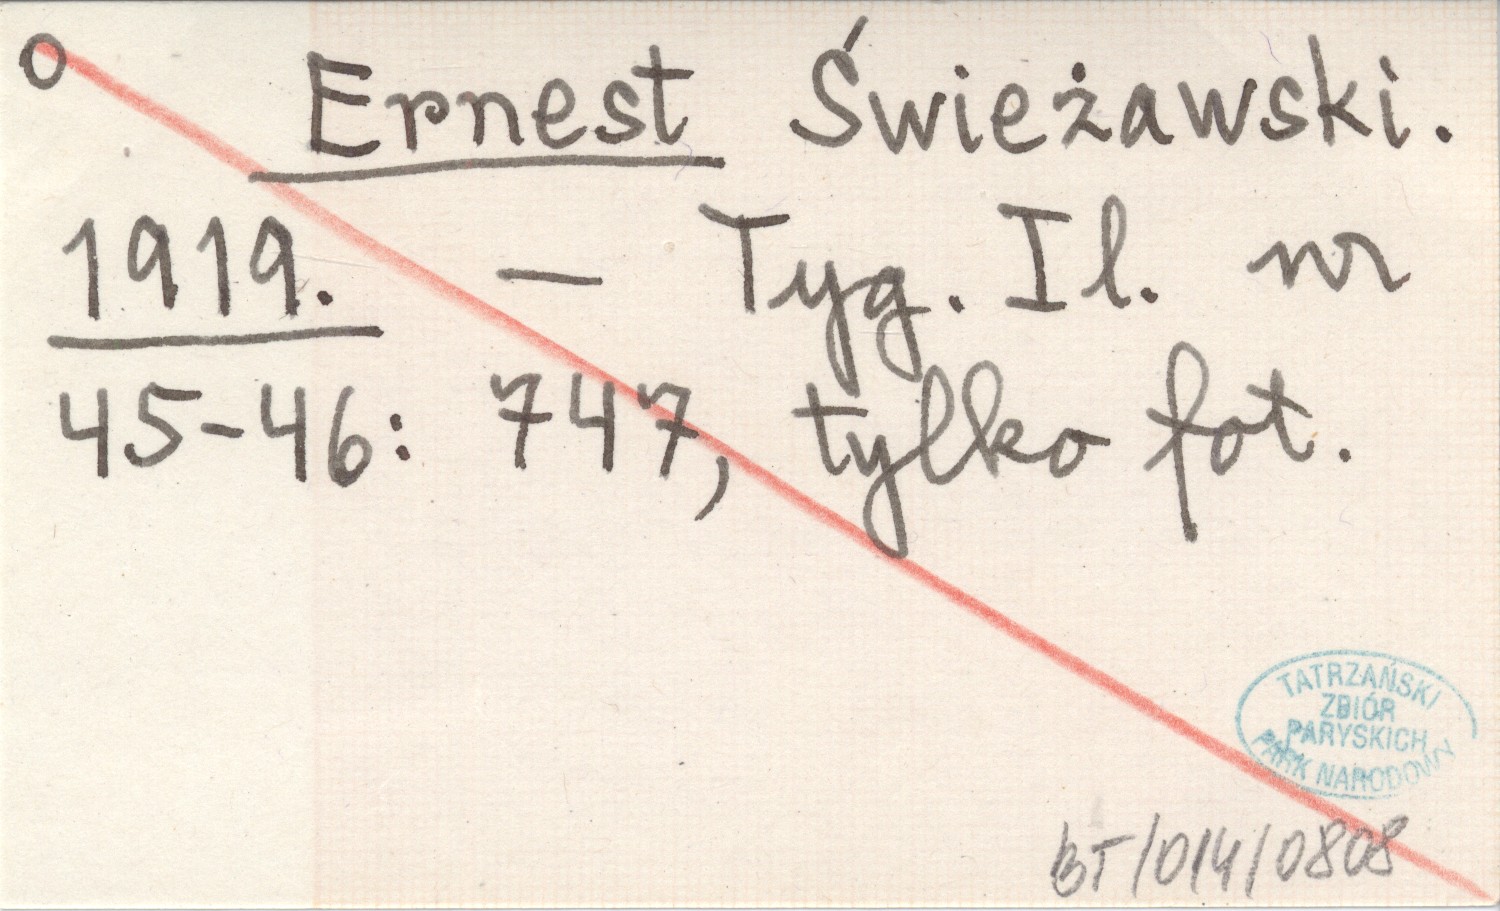 O Ernest Świeżawski.
1919. — Tyg. Il. nr
45-46: 747, tylko fot.
TATRZAŃSKI
ZBIÓR
PARYSKICH
PARK NARODOWY
BT/014/0808